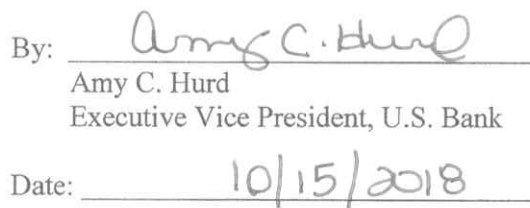 By: Amy C. Hurd
Amy C. Hurd
Executive Vice President, U.S. Bank
Date: 10/15/2018